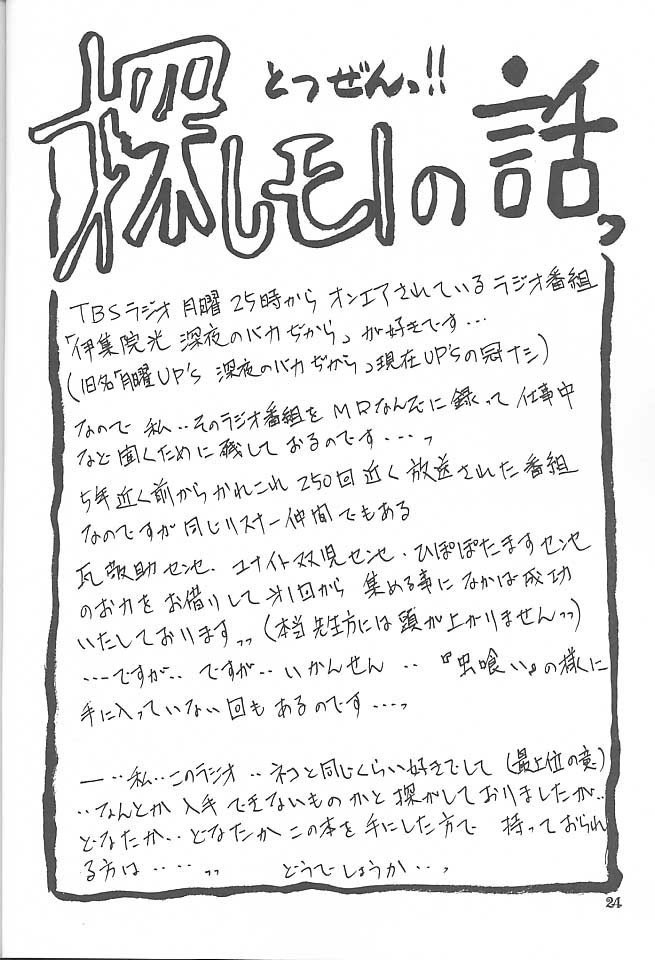 とつぜんっ!!
探しモノの話っ
TBSラジオ 月曜 25時から オンエアされている ラジオ番組
「伊集院光 深夜のバカぢから」が好きです…
(旧名「月曜UP'S 深夜のバカぢから」現在UP'Sの冠ナシ)
なので 私‥そのラジオ番組を MDなんぞに録って 仕事中
など聞くために残しておるのです‥‥っ
5年近く前からかれこれ 250回近く放送された番組
なのですが同じリスナー仲間でもある
瓦敬助センセ. ユナイト双児センセ・ひぽぽたますセンセ
のお力をお借りして オ1回から 集める事になかば成功
いたしておりますっっ (本当先生方には頭が上がりませんっっ)
‥‥ですが‥ ですが‥ いかんせん ‥ 『虫喰い』の様に
手に入っていない回もあるのです‥‥っ
ー‥私‥このラジオ‥ネコと同じくらい好きでして (最上位の意)
‥なんとか 入手できないものかと探がしておりましたが‥
どなたか‥どなたかこの本を手にした方で 持っておられ
る方は‥‥っっ どうでしょうか‥っ
24